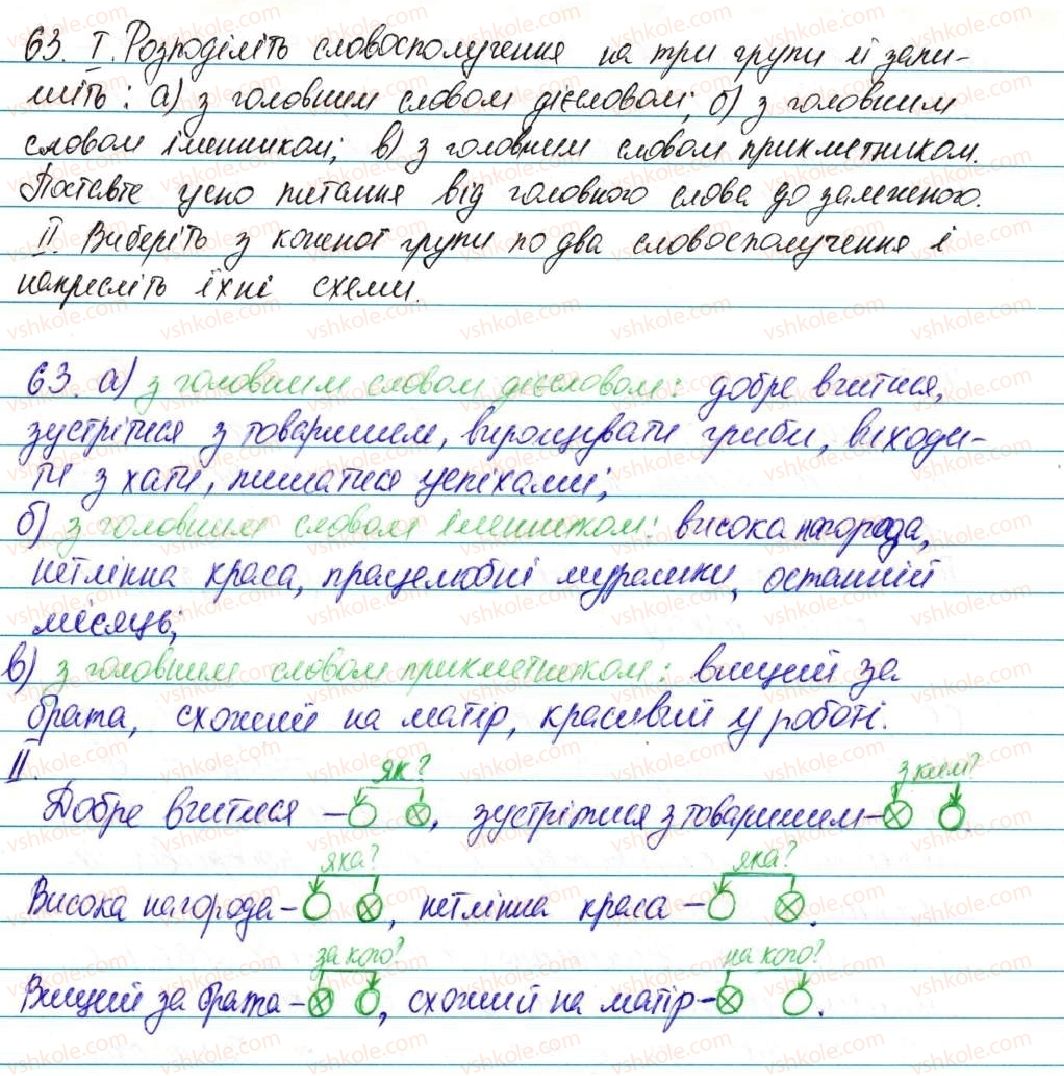 63. I. Розподіліть словосполучення на три групи й запи-
шіть: а) з головним словом дієсловом; б) з головним
словом іменником; в) з головним словом прикметником.
Поставте усно питання від головного слова до залежного.
II. Виберіть з кожної групи по два словосполучення і
накресліть їхні схеми.
63. а) з головним словом дієсловом: добре вчитися,
зустрітися з товаришем, вирощувати гриби, виходи-
ти з хати, пишатися успіхами;
б) з головним словом іменником: висока нагорода,
нетлінна краса, працелюбні мурашки, останній
місяць;
в) з головним словом прикметником: вищий за
брата, схожий на матір, красивий у роботі.
II.
як? з ким?
Добре вчитися – , зустрітися з товаришем – .
яка? яка?
Висока нагорода – , нетлінна краса – .
за кого? на кого?
Вищий за брата – , схожий на матір – .